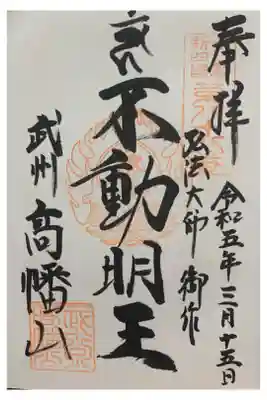 奉拝
令和五年三月十五日
弘法大師御作
不動明王
武州
高幡山